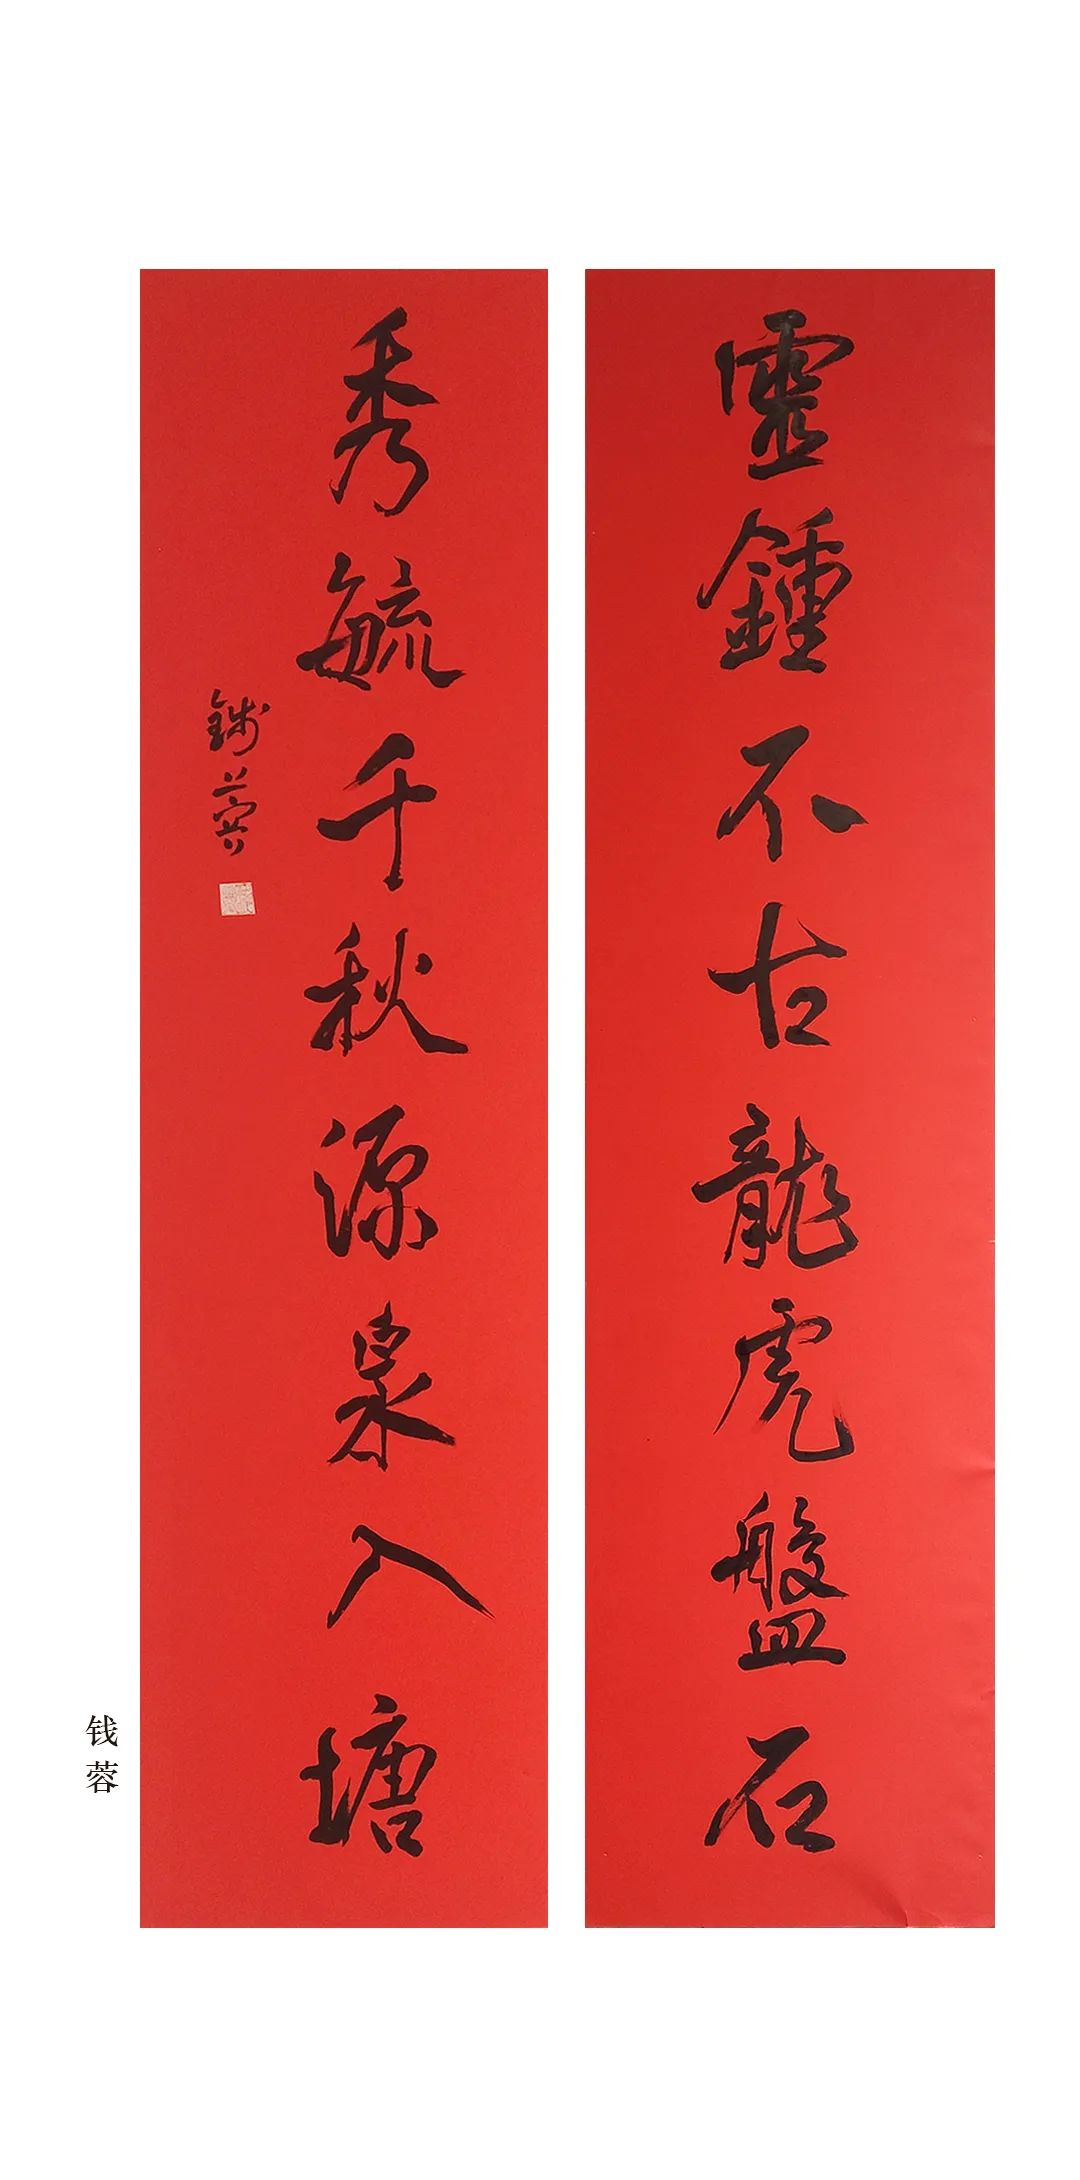 靈鍾不古龍虎盤石
秀毓千秋源泉入塘
錢蓉
钱蓉